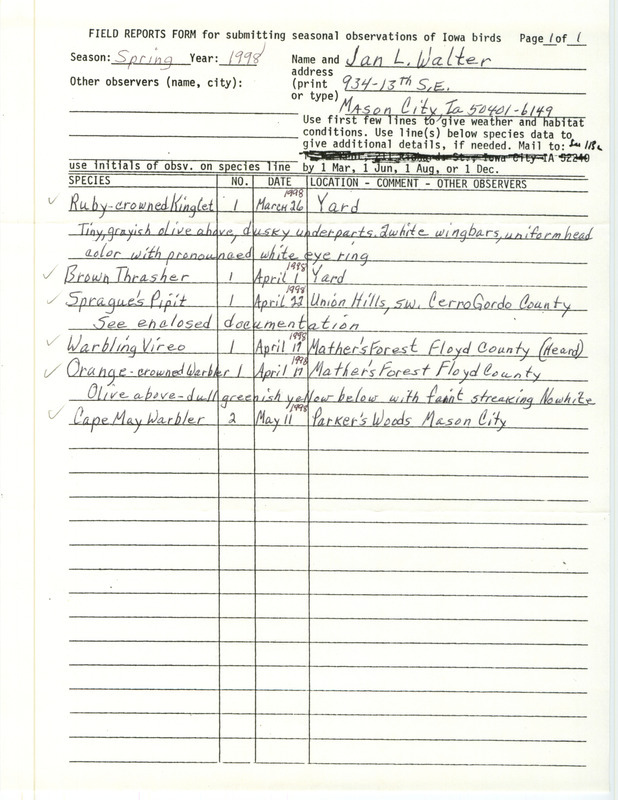 FIELD REPORTS FORM for submitting seasonal observations of Iowa birds Page 1 of 1
Season: Spring Year: 1998 Name and Jan L. Walter
address
Other observers (name, city): (print 934-13th S.E.
or type)
Mason City Ia 50401-6149
Use first few lines to give weather and habitat
conditions. Use line(s) below species data to
give additional details, if needed. Mail to:
Iowa City IA 52240
use initials of obsv. on species line by 1 Mar, 1 Jun, 1 Aug, or 1 Dec.
SPECIES NO. DATE LOCATION - COMMENT - OTHER OBSERVERS
✓ Ruby-crowned Kinglet 1 March 26 1998 Yard
Tiny, grayish olive above, dusky underparts. 2 white wingbars, uniform head
color with pronounced white eye ring
✓ Brown Thrasher 1 April 1 1998 Yard
✓ Sprague's Pipit 1 April 22 1998 Union Hills, sw. Cerro Gordo County
See enclosed documentation
✓ Warbling Vireo 1 April 17 1998 Mather's Forest Floyd County (Heard)
✓ Orange-crowned Warbler 1 April 17 1998 Mather's Forest Floyd County
Olive above-dull greenish yellow below with faint streaking No white
✓ Cape May Warbler 2 May 11 1998 Parker's Woods Mason City